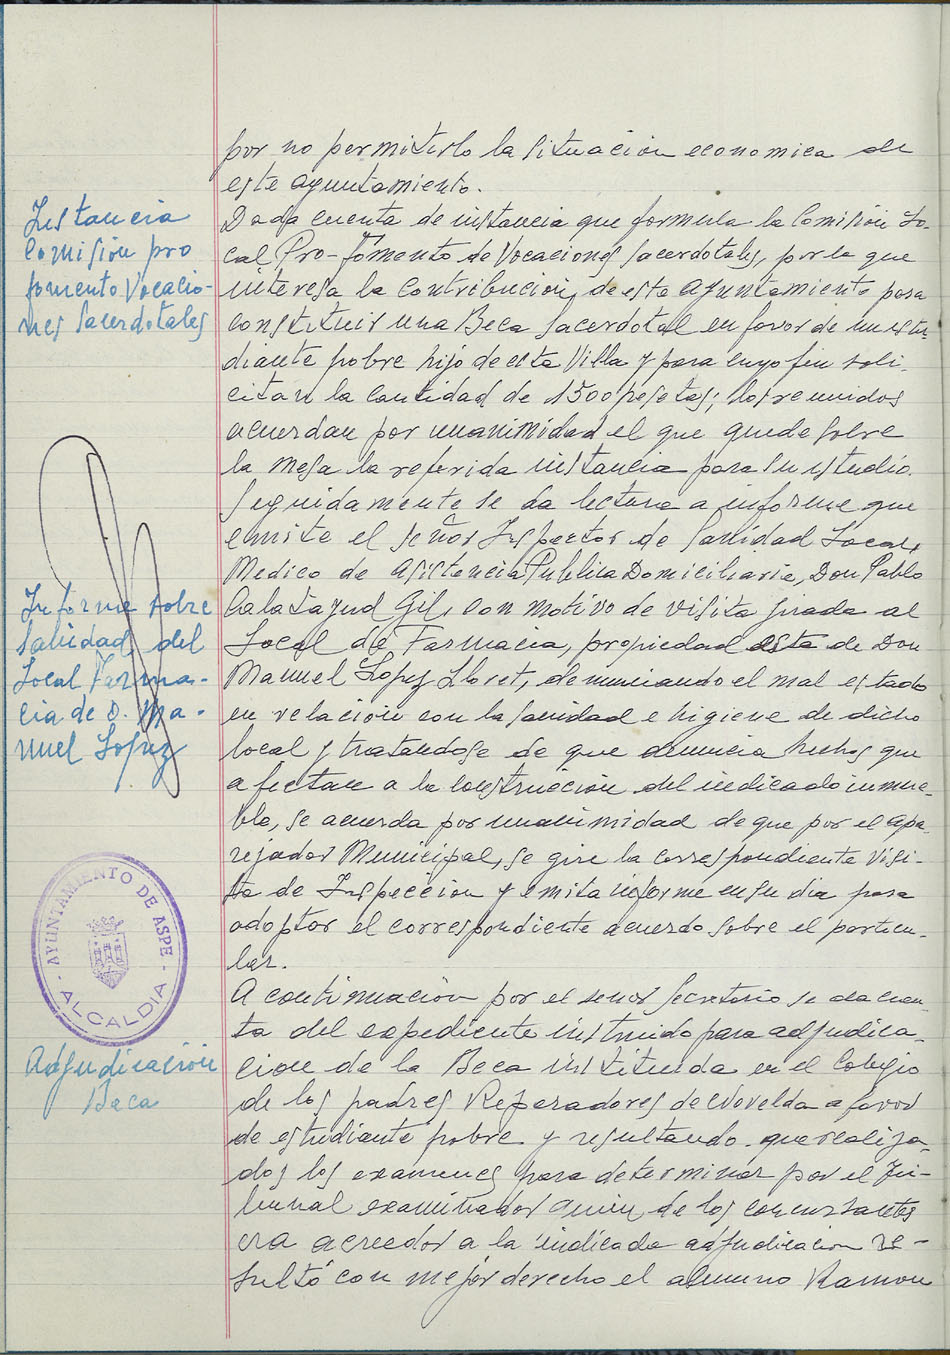 por no permitirlo la situacion economica de
este ayuntamiento.
Instancia
Comisión pro
fomento Vocacio-
nes Sacerdotales
Dada cuenta de instancia que formula la Comisión Lo-
cal Pro-Fomento de Vocaciones Sacerdotales, por la que
interesa la contribucion de este Ayuntamiento para
constituir una Beca Sacerdotal en favor de un estu-
diante pobre hijo de esta Villa y para cuyo fin soli-
citan la cantidad de 1500 pesetas; los reunidos
acuerdan por unanimidad el que quede sobre
la mesa la referida instancia para su estudio.
Informe sobre
Sanidad del
Local Farma-
cia de D. Ma-
nuel Lopez
Seguidamente se da lectura a informe que
emite el señor Inspector de Sanidad Local,
Medico de Asistencia Publica Domiciliaria, Don Pablo
Calatayud Gil, con motivo de visita girada al
Local de Farmacia, propiedad esta de Don
Manuel Lopez Lloret, denunciando el mal estado
en relación con la sanidad e higiene de dicho
local y tratandose de que denuncia hechos que
afectan a la construccion del indicado inmue-
ble, se acuerda por unanimidad de que por el Apa-
rejador Municipal, se gire la correspondiente visi-
ta de Inspección y emita informe en su dia para
adoptar el correspondiente acuerdo sobre el particu-
lar.
AYUNTAMIENTO DE ASPE
ALCALDIA
Adjudicación
Beca
A continuación por el señor Secretario se da cuen-
ta del expediente instruido para adjudica-
cion de la Beca instituida en el Colegio
de los padres Reparadores de Novelda a favor
de estudiante pobre y resultando que realiza-
dos los examenes para determinar por el Tri-
bunal examinador quien de los concursantes
era acreedor a la indicada adjudicacion re-
sultó con mejor derecho el alumno Ramon